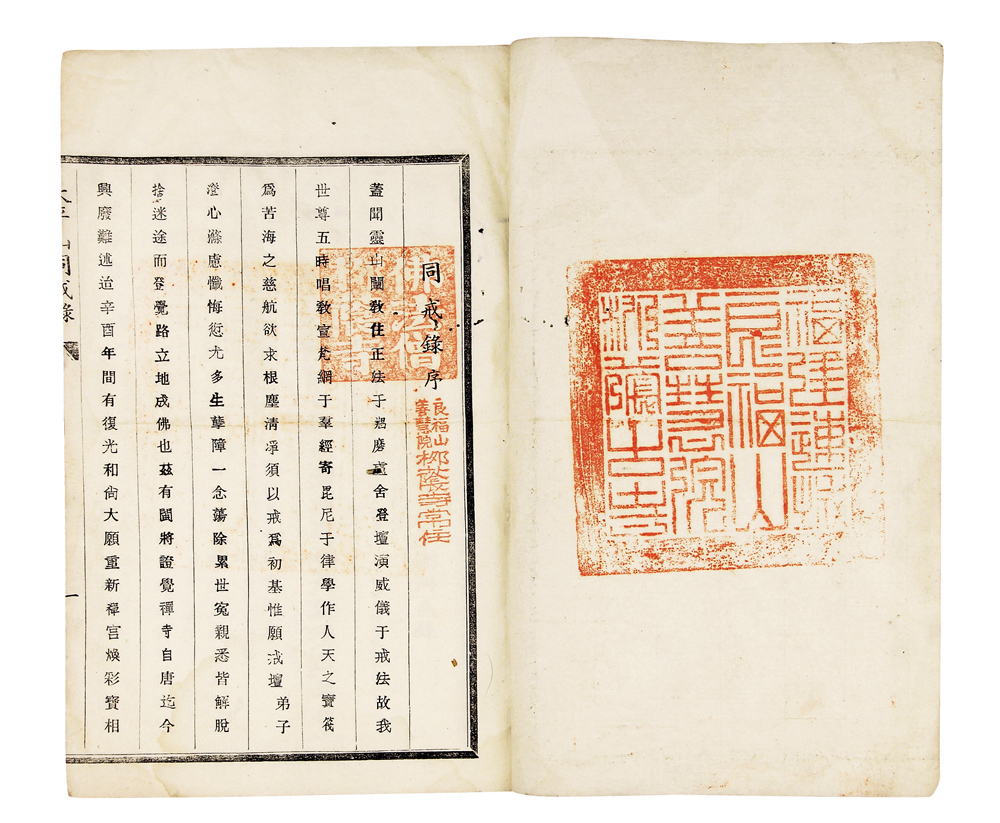 福建連城
良福山
善慧院
同戒錄序
良福山
善慧院
寺常住
佛法僧
蓋聞靈山闡教住正法于磨舍登壇演威儀于戒法故我
世尊五時唱教宣梵網于羣經寄毘尼于律學作人天之寶筏
爲苦海之慈航欲求根塵清淨須以戒爲初基惟願戒壇弟子
澄心滌慮懺悔愆尤多生孽障一念蕩除累世冤親悉皆解脫
捨迷途而登覺路立地成佛也茲有閩將證覺禪寺自唐迄今
興廢難述迨辛酉年間有復光和尙大願重新禪宮煥彩寶相
山同戒錄
一